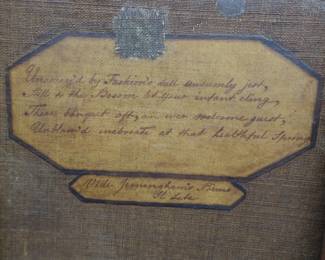 by Fashion's dull unseemly jest,
Still to the Bosom let your infant cling,
There banquet oft, an ever welcome guest,
Unblam'd inebriate at that healthful Spring
Vide Jerningham's Poems
Il Latte